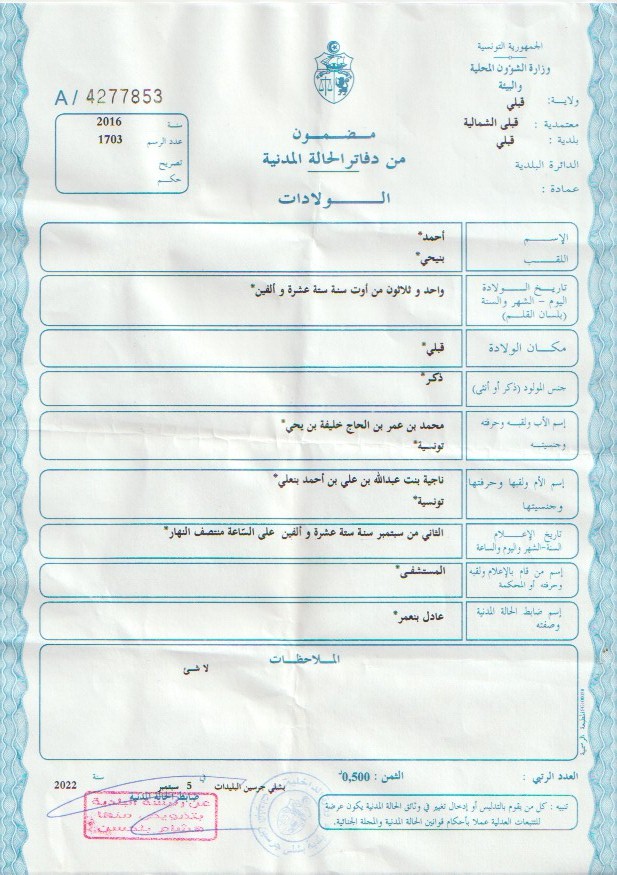 الجمهورية التونسية
وزارة الشؤون المحلية
والبيئة
ولاية: قبلي
معتمدية : قبلى الشمالية
بلدية : قبلي
الدائرة البلدية
عمادة :
A/ 4277853
سنة 2016
عدد الرسم 1703
تصريح
حكم
مضمون
من دفاتر الحالة المدنية
الولادات
الإسم أحمد*
اللقب بنيحي*
تاريخ الولادة
اليوم - الشهر والسنة
(بلسان القلم)
واحد و ثلاثون من أوت سنة ستة عشرة و ألفين*
مكان الولادة قبلي*
جنس المولود (ذكر أو أنثى) ذكر*
إسم الأب ولقبه وحرفته محمد بن عمر بن الحاج خليفة بن يحي*
وجنسيته تونسية*
إسم الأم ولقبها وحرفتها ناجية بنت عبدالله بن علي بن أحمد بنعلي*
وجنسيتها تونسية*
تاريخ الإعلام
السنة-الشهر واليوم والساعة
الثاني من سبتمبر سنة ستة عشرة و ألفين على السّاعة منتصف النهار*
إسم من قام بالإعلام ولقبه
وحرفته أو المحكمة
المستشفى*
إسم ضابط الحالة المدنية
وصفته
عادل بنعمر*
الملاحظات
لا شئ
المطبعة الرسمية
العدد الرتبي : الثمن : 0,500د
تنبيه : كل من يقوم بالتدليس أو إدخال تغيير في وثائق الحالة المدنية يكون عرضة
للتتبعات العدلية عملا بأحكام قوانين الحالة المدنية والمجلة الجنائية.
بشلي جرسين البليدات في 5 سبتمبر سنة 2022
ضابط الحالة المدنية
عن رئيسة البلدية
بتفويض منها